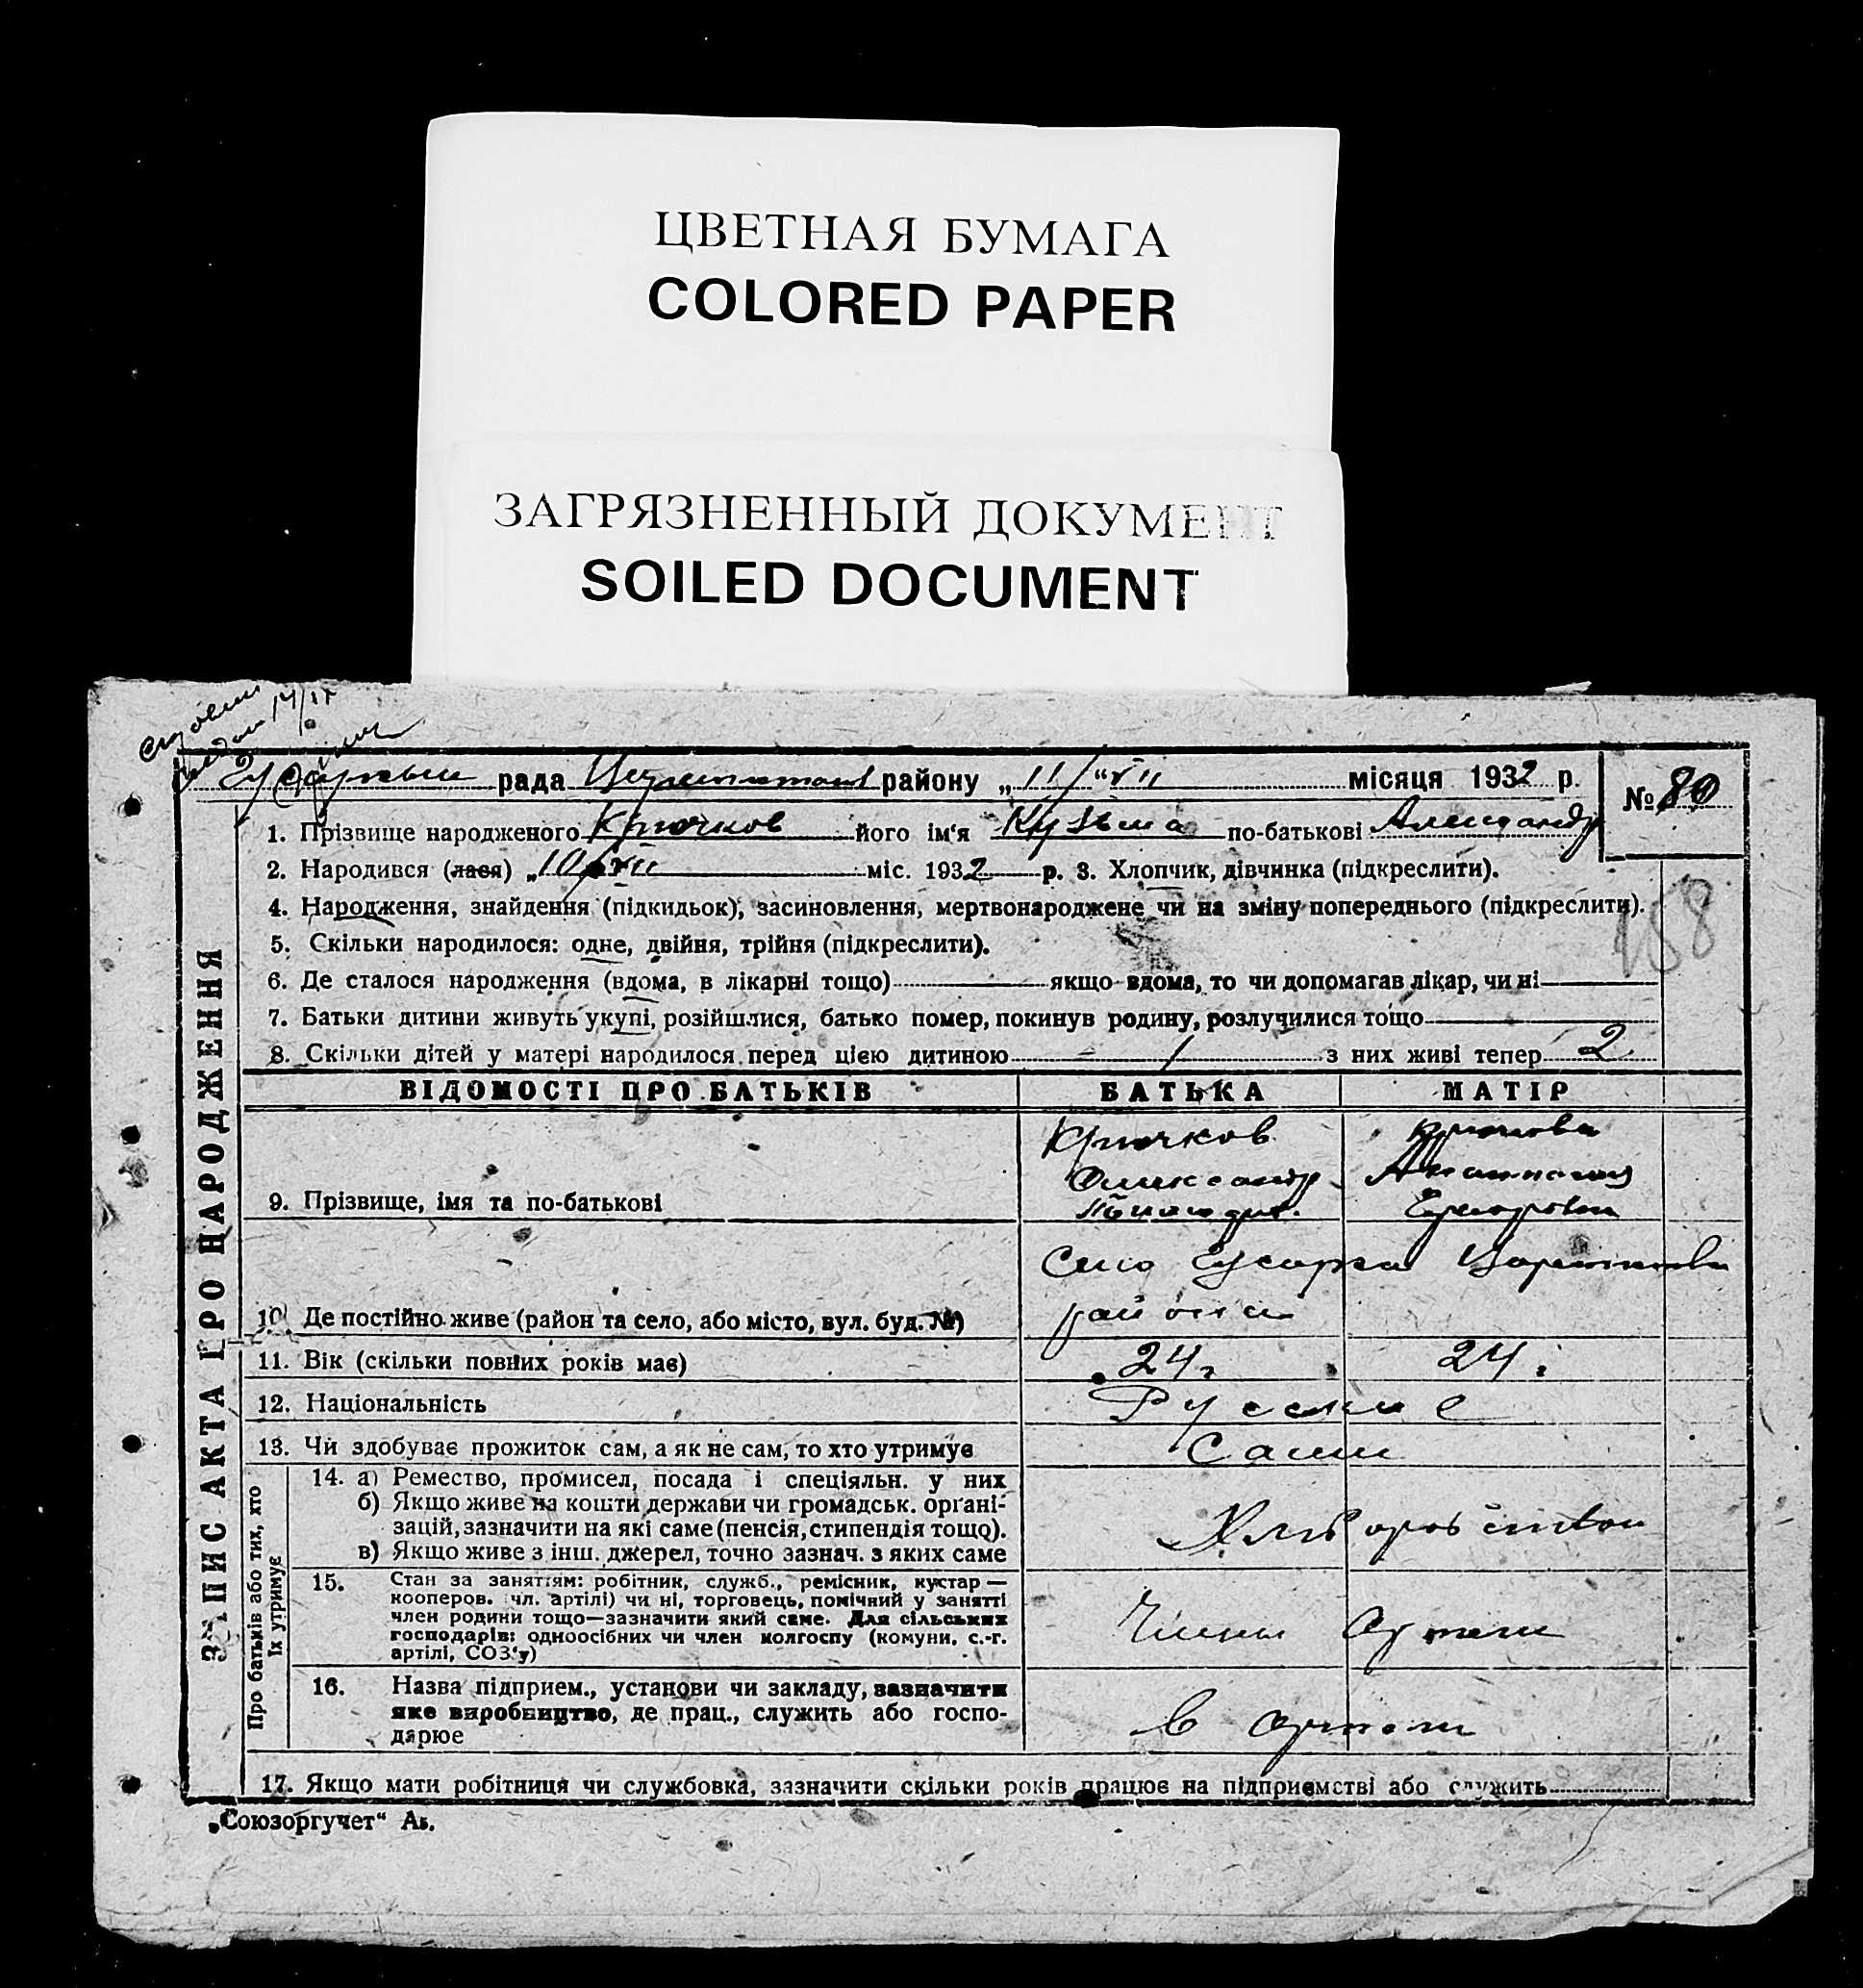 ЦВЕТНАЯ БУМАГА
COLORED PAPER
ЗАГРЯЗНЕННЫЙ ДОКУМЕНТ
SOILED DOCUMENT
рада району „11/“ VII місяця 1932 р.
№ 80
1. Прізвище народженого Крючков його ім‘я Кузьма по-батькові Александр
2. Народився (лася) „10/VII міс. 1932 р. 3. Хлопчик, дівчинка (підкреслити).
4. Народження, знайдення (підкидьок), засиновлення, мертвонароджене чи на зміну попереднього (підкреслити).
158
5. Скільки народилося: одне, двійня, трійня (підкреслити).
6. Де сталося народження (вдома, в лікарні тощо) якщо вдома, то чи допомагав лікар, чи ні
7. Батьки дитини живуть укупі, розійшлися, батько помер, покинув родину, розлучилися тощо
8. Скільки дітей у матері народилося перед цією дитиною 1 з них живі тепер 2
ЗАПИС АКТА ПРО НАРОДЖЕННЯ
ВІДОМОСТІ ПРО БАТЬКІВ БАТЬКА МАТІР
Крючков
9. Прізвище, імя та по-батькові
Село Гусарка
района
10. Де постійно живе (район та село, або місто, вул. буд. №)
11. Вік (скільки повних років має) 24 г 24 г
12. Національність Русские
13. Чи здобуває прожиток сам, а як не сам, то хто утримує Сами
Про батьків або тих, хто їх утримує
14. а) Ремество, промисел, посада і спеціяльн. у них
б) Якщо живе на кошти держави чи громадськ. органі-
зацій, зазначити на які саме (пенсія, стипендія тощо).
в) Якщо живе з інш. джерел, точно зазнач. з яких саме
15. Стан за заняттям: робітник, служб., ремісник, кустар —
кооперов. (чл. артілі) чи ні, торговець, помічний у занятті
член родини тощо—зазначити який саме. Для сільських
господарів: одноосібних чи член колгоспу (комуни, с.-г.
артілі, СОЗ‘у)
Члены Артели
16. Назва підприєм., установи чи закладу, зазначити
яке виробництво, де прац., служить або госпо-
дарює
в артели
17. Якщо мати робітниця чи службовка, зазначити скільки років працює на підприємстві або служить
„Союзоргучет“ Ав.